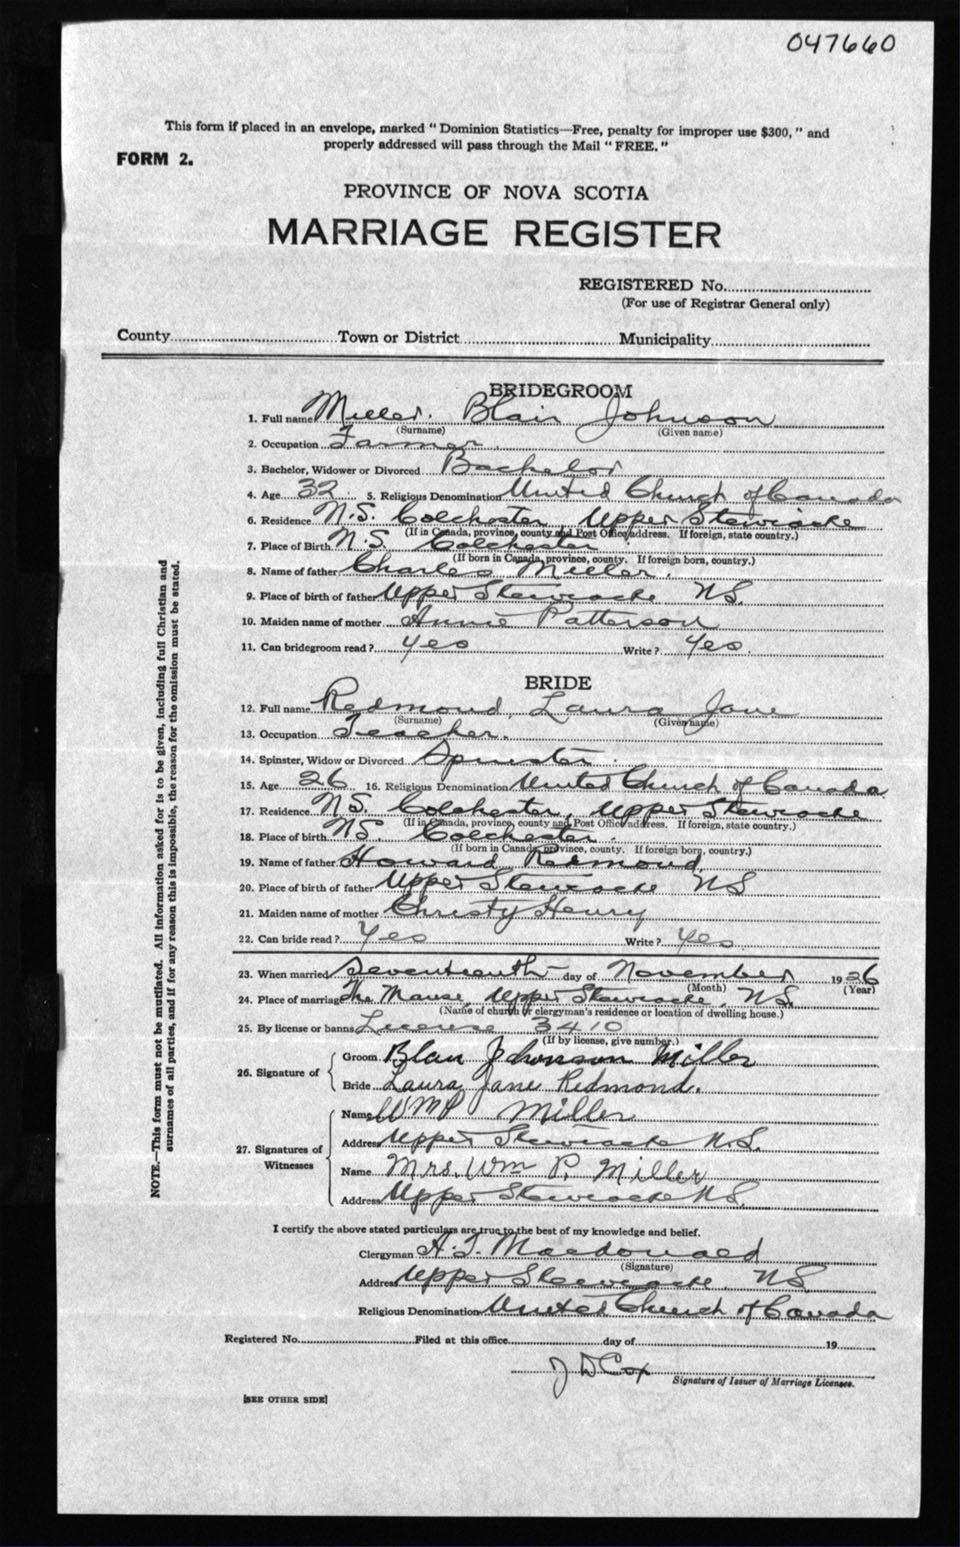 047660
This form if placed in an envelope, marked "Dominion Statistics—Free, penalty for improper use $300," and
properly addressed will pass through the Mail "FREE."
FORM 2.
PROVINCE OF NOVA SCOTIA
MARRIAGE REGISTER
REGISTERED No.
(For use of Registrar General only)
County Town or District Municipality
BRIDEGROOM
1. Full name Miller. Blair Johnson
(Surname) (Given name)
2. Occupation Farmer.
3. Bachelor, Widower or Divorced Bachelor
4. Age 32 5. Religious Denomination United Church of Canada
6. Residence N.S. Colchester Upper Stewiacke
(If in Canada, province, county and Post Office address. If foreign, state country.)
7. Place of Birth N.S. Colchester
(If born in Canada, province, county. If foreign born, country.)
8. Name of father Charles Miller.
9. Place of birth of father Upper Stewiacke N.S.
10. Maiden name of mother Annie Patterson
11. Can bridegroom read? Yes Write? Yes.
BRIDE
12. Full name Redmond, Laura Jane
(Surname) (Given name)
13. Occupation Teacher.
14. Spinster, Widow or Divorced Spinster.
15. Age 26 16. Religious Denomination United Church of Canada
17. Residence N.S. Colchester, Upper Stewiacke
(If in Canada, province, county and Post Office address. If foreign, state country.)
18. Place of birth N.S. Colchester.
(If born in Canada, province, county. If foreign born, country.)
19. Name of father Howard Redmond
20. Place of birth of father Upper Stewiacke N.S
21. Maiden name of mother Christy Henry
22. Can bride read? Yes Write? Yes.
23. When married Seventeenth day of November 1926
(Month) (Year)
24. Place of marriage The Manse, Upper Stewiacke, N.S.
(Name of church or clergyman's residence or location of dwelling house.)
25. By license or banns License 3410
(If by license, give number.)
26. Signature of
Groom Blair Johnson Miller
Bride Laura Jane Redmond.
27. Signatures of Witnesses
Name WM P Miller
Address Upper Stewiacke N.S.
Name Mrs. Wm P. Miller
Address Upper Stewiacke N.S.
I certify the above stated particulars are true to the best of my knowledge and belief.
Clergyman A. T. Macdonald
(Signature)
Address Upper Stewiacke, N.S
Religious Denomination United Church of Canada
Registered No. Filed at this office day of 19
J D Cox
Signature of Issuer of Marriage Licenses.
[SEE OTHER SIDE]
NOTE.—This form must not be mutilated. All information asked for is to be given, including full Christian and
surnames of all parties, and if for any reason this is impossible, the reason for the omission must be stated.